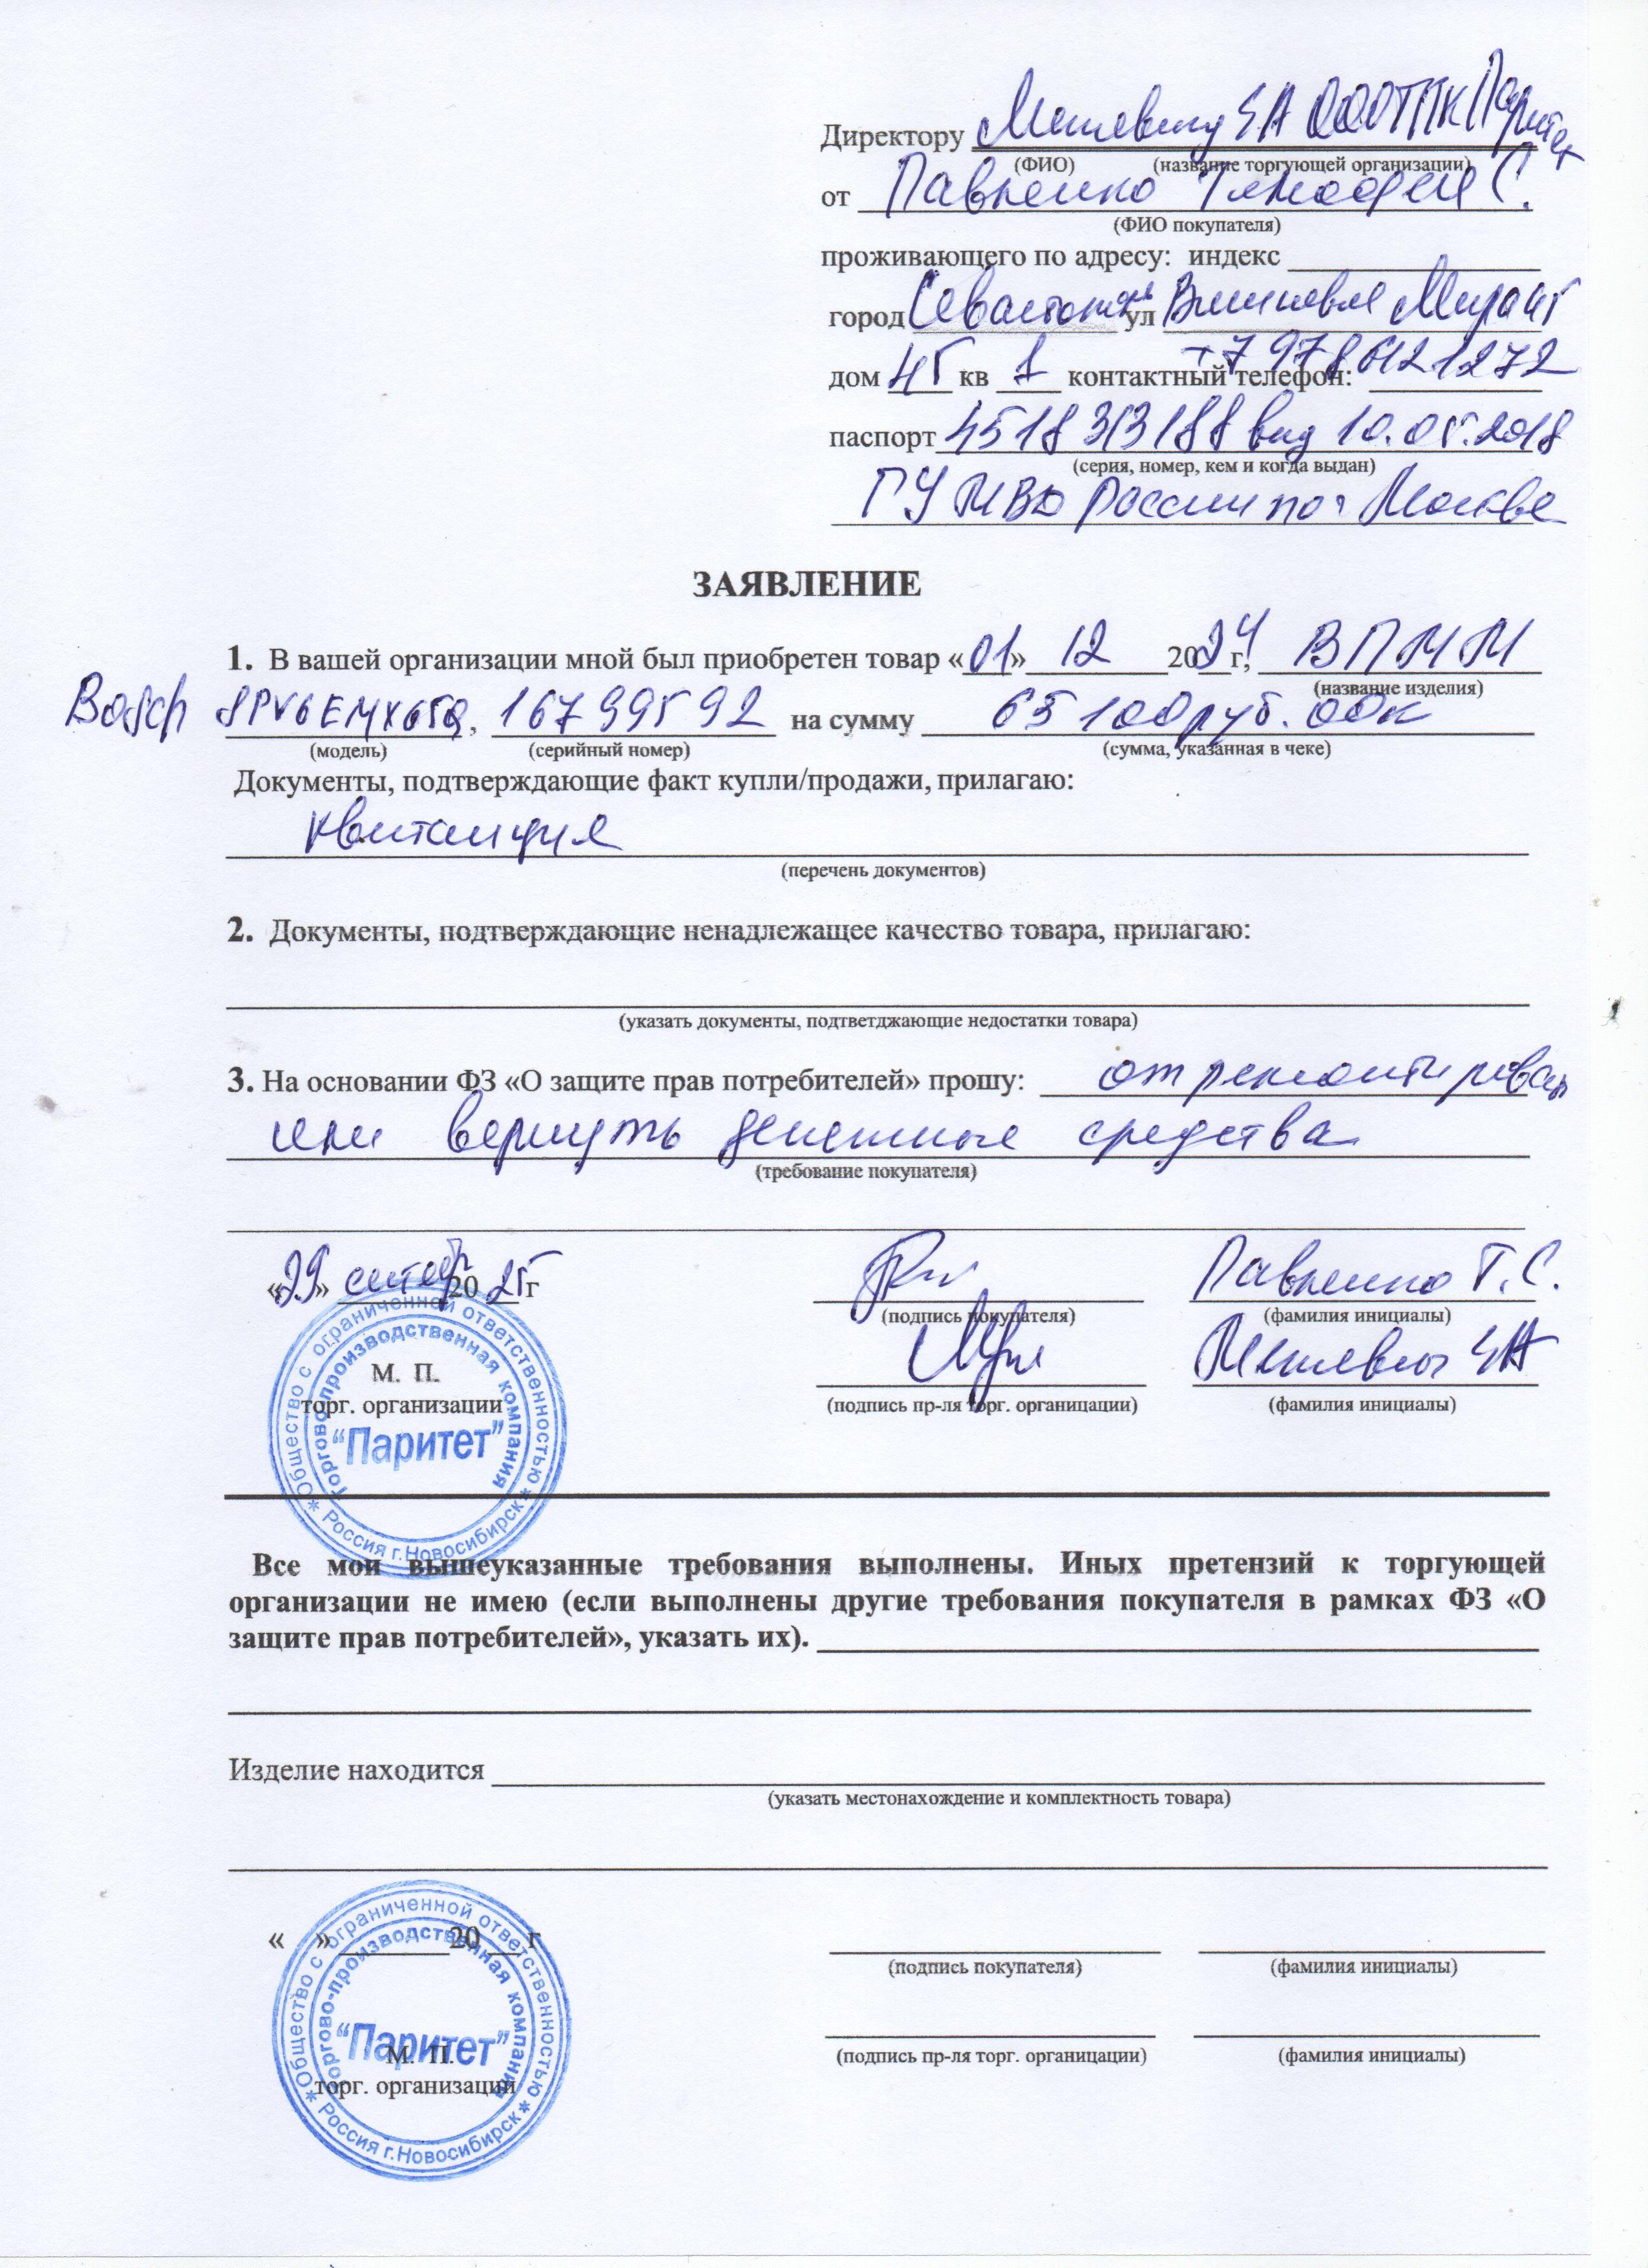 Директору ООО ТПК Паритет
(ФИО) (название торгующей организации)
от Павленко Тимофей С.
(ФИО покупателя)
проживающего по адресу: индекс
город Севастополь ул
дом 45 кв 1 контактный телефон: +7 978 6121272
паспорт 4518 313188 выд 10.05.2018
(серия, номер, кем и когда выдан)
ГУ МВД России по г Москве
ЗАЯВЛЕНИЕ
1. В вашей организации мной был приобретен товар «01» 12 2024 г, ВПММ
(название изделия)
Bosch SPV6EMX65Q, 16799592 на сумму 65100 руб. 00к
(модель) (серийный номер) (сумма, указанная в чеке)
Документы, подтверждающие факт купли/продажи, прилагаю:
квитанция
(перечень документов)
2. Документы, подтверждающие ненадлежащее качество товара, прилагаю:
(указать документы, подтветджающие недостатки товара)
3. На основании ФЗ «О защите прав потребителей» прошу: отремонтировать
или вернуть денежные средства
(требование покупателя)
«29» сентяб 2025 г Павленко Т.С.
(подпись покупателя) (фамилия инициалы)
М. П.
торг. организации
(подпись пр-ля торг. органицации) (фамилия инициалы)
Общество с ограниченной ответственностью
Торгово-производственная компания
"Паритет"
* Россия г.Новосибирск *
Все мои вышеуказанные требования выполнены. Иных претензий к торгующей
организации не имею (если выполнены другие требования покупателя в рамках ФЗ «О
защите прав потребителей», указать их).
Изделие находится
(указать местонахождение и комплектность товара)
« » 20 г
(подпись покупателя) (фамилия инициалы)
Общество с ограниченной ответственностью
Торгово-производственная компания
"Паритет"
* Россия г.Новосибирск *
М. П.
торг. организации
(подпись пр-ля торг. органицации) (фамилия инициалы)